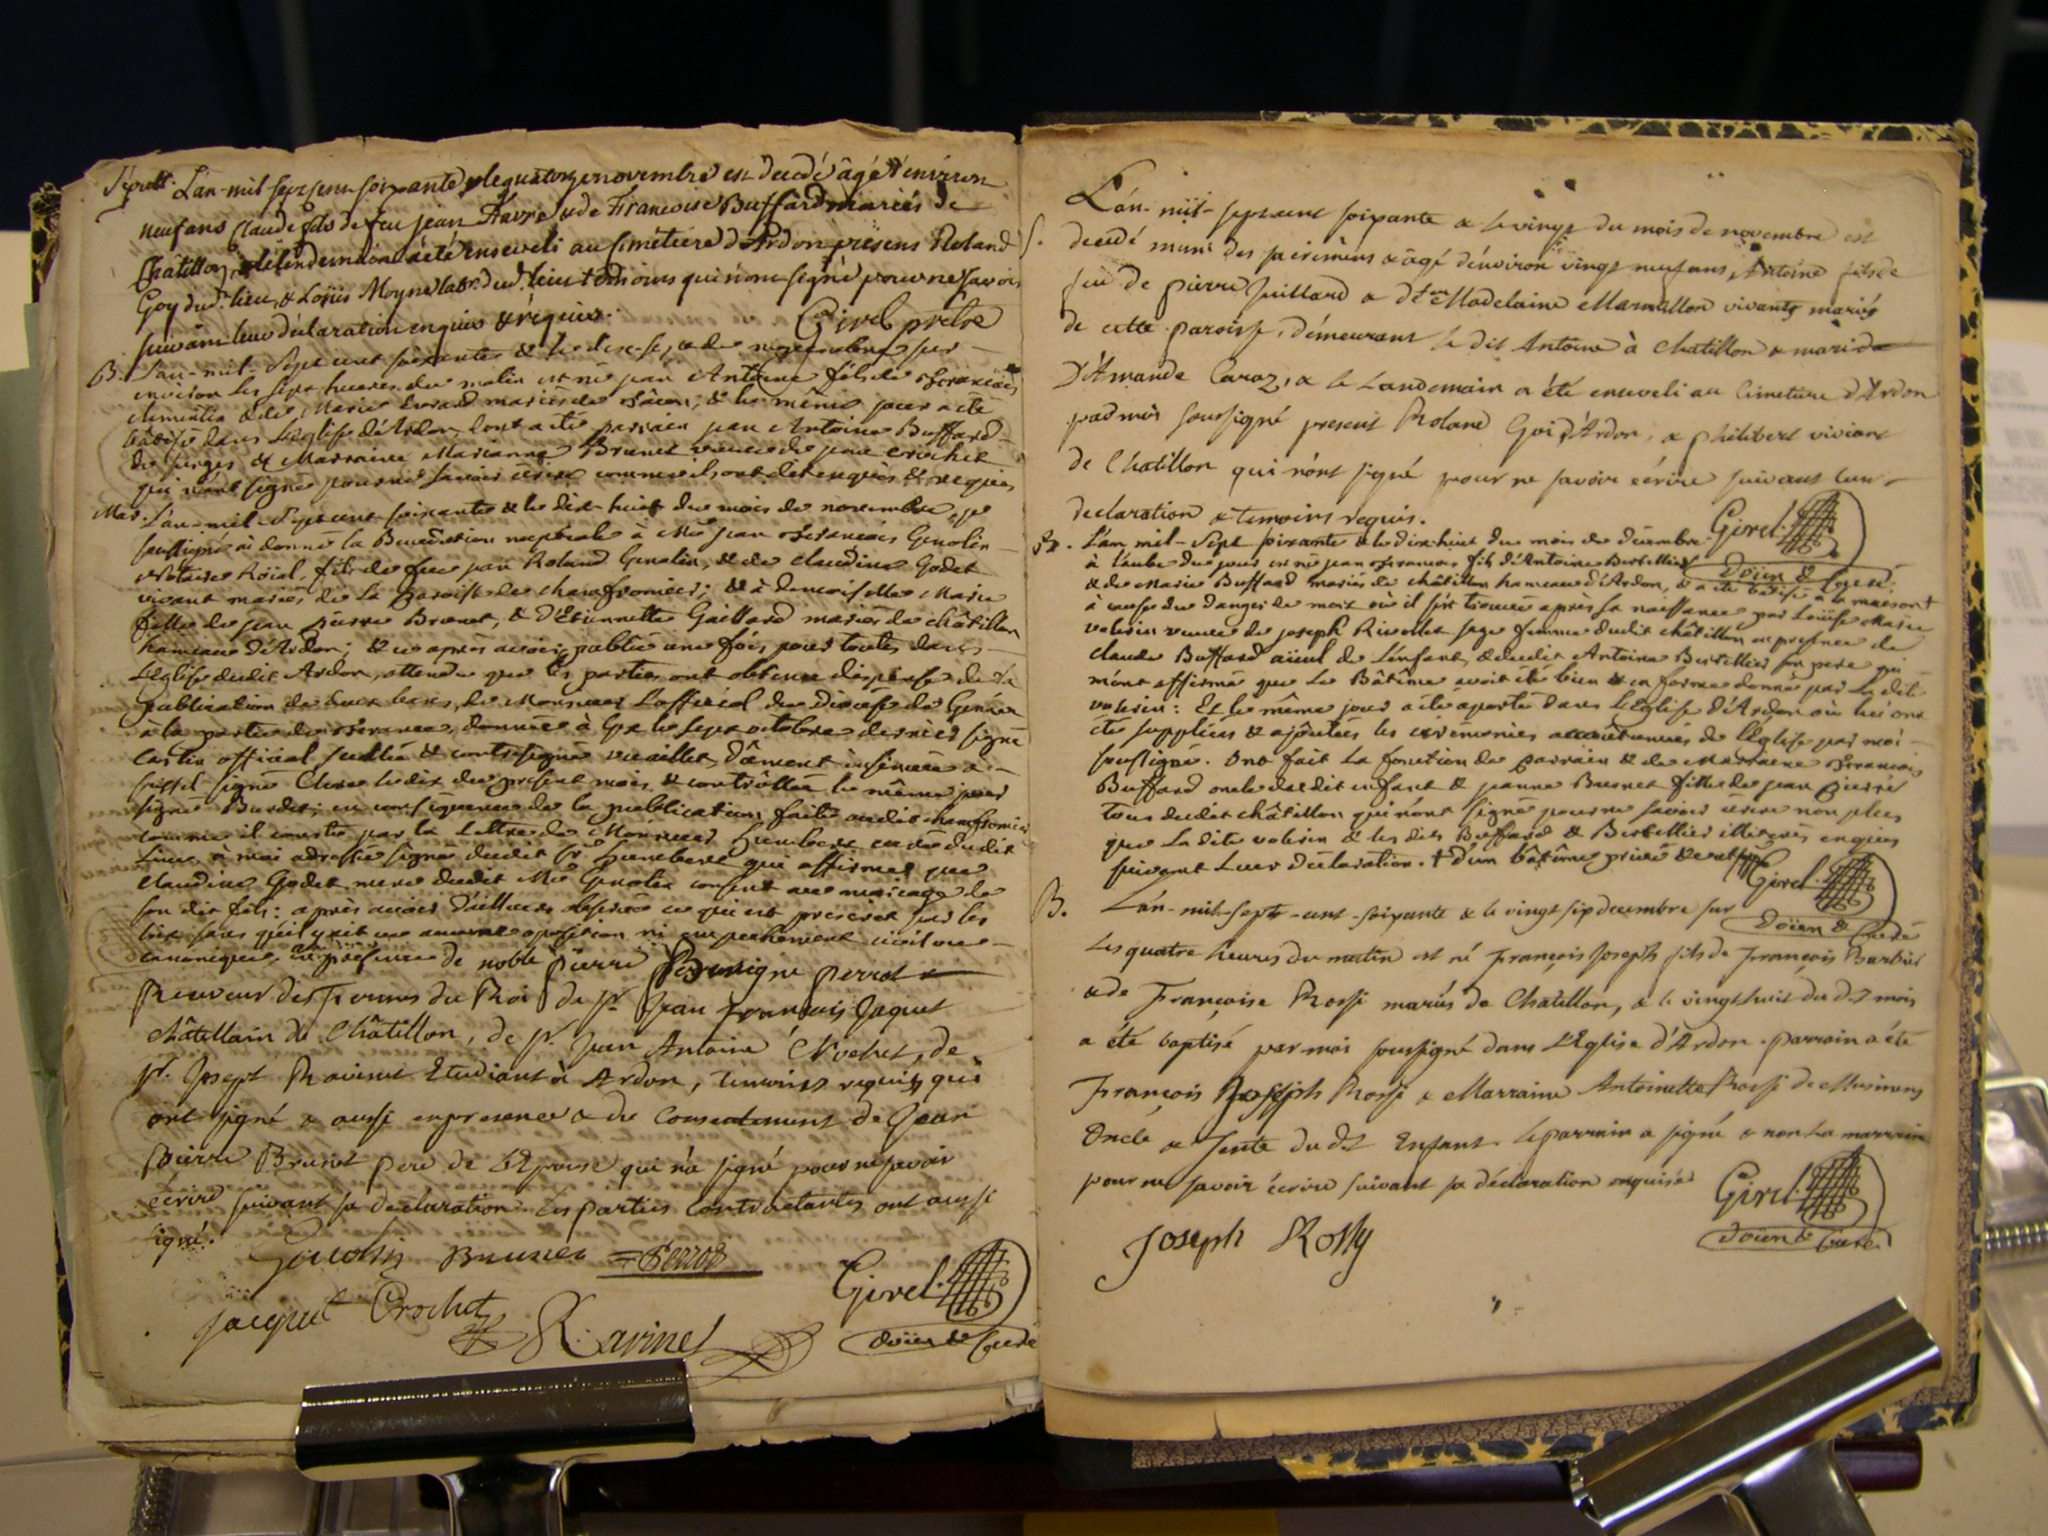 Sépult. L'an mil sept cent soixante & le quatorze novembre est decedé âgé d'environ
neuf ans Claude fils de feu jean Favre & de Francoise Buffard mariés de
Châtillon, & le lendemain a été enseveli au cimétiere d'Ardon présens Roland
Goy dud. lieu, & Loüis Moyne lab.r dud. lieu témoins qui n'ont signé pour ne savoir
suivant leur déclaration enquis & réquis. Girel prêtre
B. L'an mil sept cent soixante & le dix-sept de novembre sur
environ les sept heures du matin est né jean Antoine fils de François
& de Marie mariés de & le même jour a été
bâtisé dans L'Eglise d'Ardon, dont a été parrain jean Antoine Buffard
de & Marraine Marianne Brunet veuve de jean Crochet
qui n'ont signé pour ne savoir écrire comme ils ont dit enquis & requis
Mar. L'an mil sept cent soixante & le dix-huit du mois de novembre, je
soussigné ai donné la Benediction nuptiale à M.re jean François Genolin
Notaire Roïal, fils de feu jean Roland Genolin, & de claudine Godet
vivant mariés de la paroisse de chamfromier; & à demoiselle Marie
fille de jean pierre Brunet, & d'Etiennette Gaillard mariés de châtillon
hameau d'Ardon; & ce après avoir publié une fois pour toutes dans
L'église dudit Ardon, attendu que les parties ont obtenu dispense de la
publication de deux bans, de Monsieur L'official du Diocèse de Genève
à la partie de France, donnée à Gex le sept octobre dernier signé
Castin official scellée & contresigné vuaillet, dûment insinuée à
signé Cluse le dix du present mois & contrôllée le même jour
signé Burdet; en consequence de la publication faite audit chamfromier
comme il conste par la Lettre de Monsieur humbert curé dudit
Lieu à moi adressée signé dudit S.r humbert qui affirme que
claudine Godet mere dudit M.re Genolin consent au mariage de
son dit fils: après avoir d'ailleurs observé ce qui est prescrit par les
loix sans qu'il y ait eu aucune oposition ni empechement civil ou
canonique, en présence de noble pierre Benigne perrot
Receveur des Fermes du Roi, de S.r Jean François Jaquet
châtellain de Châtillon, de S.r Jean Antoine Crochet, de
S.r Joseph Ravinet Etudiant à Ardon, temoins requis qui
ont signé & aussi en presence & du Consentement de Jean
pierre Brunet pere de L'Epouse qui n'a signé pour ne savoir
écrire suivant sa declaration. Les parties Contractantes ont aussi
signé.
Genolin Brunet Perrot
jacquet Crochet Ravinet Girel
Doïen & Curé
L'an mil sept cent soixante & le vingt du mois de novembre est
S. decedé muni des sacremens & âgé d'environ vingt neuf ans, Antoine fils de
feu de pierre Juillard & de Madelaine Marmillon vivants mariés
de cette paroisse, démeurant le dit Antoine à Chatillon & mari de
D'Amande Caroz, & le Landemain a été enseveli au Cimetiere d'Ardon
par moi soussigné present Roland Goi d'Ardon, & philibert vivians
de Chatillon qui n'ont signé pour ne savoir écrire suivant leur
declaration & temoins requis.
Girel
Doïen & Curé
B. L'an mil sept soixante & le dix-huit du mois de décembre
à l'aube du jour est né jean François fils d'Antoine Bertellier
& de Marie Buffard mariés de châtillon hameau d'Ardon, & a été bâtisé à la maison †
à cause du danger de mort où il s'est trouvé après sa naissance par Loüise Marie
volerin veuve de joseph Rivollet sage femme dudit châtillon en presence de
claude Buffard aïeul de L'enfant, & dudit Antoine Bertellier son pere qui
m'ont affirmé que Le Bâtême avoit été bien & en forme donné par La dite
volerin: Et le même jour a été aporté dans L'Eglise d'Ardon où lui ont
été suppliées & ajoutées les cérémonies accoutumées de l'Eglise par moi
soussigné. Ont fait La fonction de parrain & de Marraine François
Buffard oncle dudit enfant & jeanne Brunet fille de jean pierre
tous dudit châtillon qui n'ont signé pour ne savoir écrire non plus
que La dite volerin & les dits Buffard & Bertellier illiterés enquis
suivant Leur déclaration. † d'un bâtême privé &
Girel
Doïen & Curé
B. L'an mil sept cent soixante & le vingt six decembre sur
Les quatre heures du matin est né François Joseph fils de François Barbier
& de Françoise Rossi mariés de Chatillon, & le vingt huit du dt mois
a été baptisé par moi soussigné dans L'Eglise d'Ardon. parrain a été
François Joseph Rossi & Marraine Antoinette Rossi de Musinens
Oncle & Tente du dt Enfant. le parrain a signé & non La marraine
pour ne savoir écrire suivant sa déclaration enquise
Girel
Doïen & Curé
Joseph Rossy